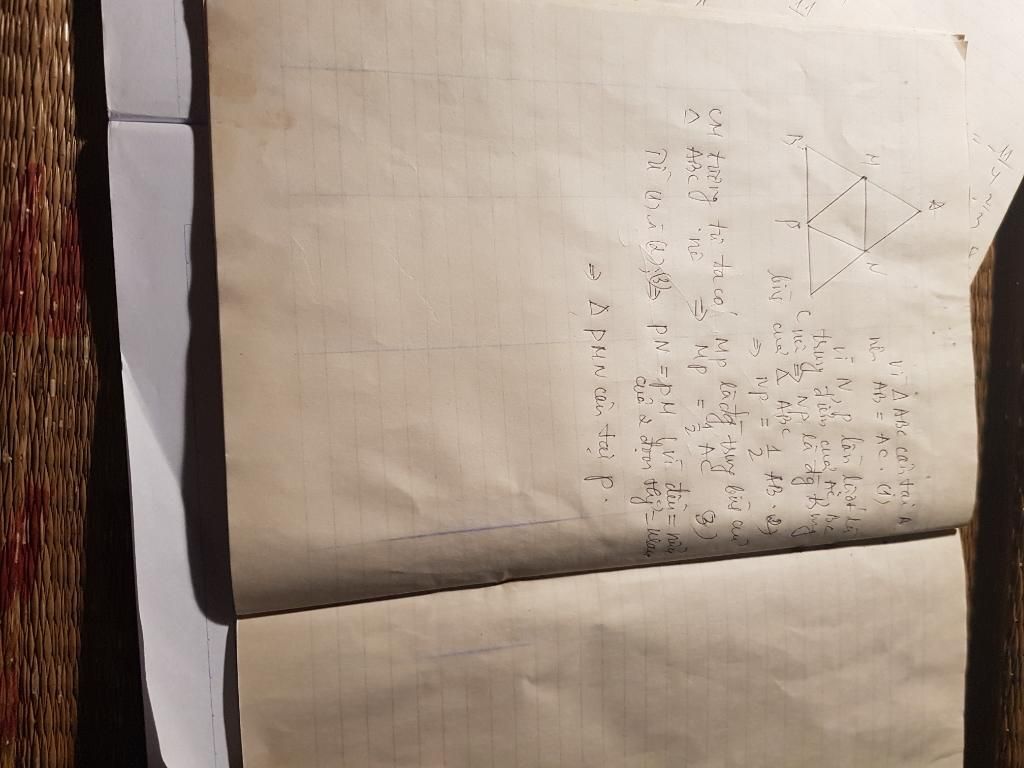 A
M
N
B
P
C
Vì △ ABC cân tại A
nên AB = AC. (1)
Vì N, P lần lượt là
trung điểm của AC, BC
nên ⇒ NP là đg trung
bình của △ ABC
⇒ NP = 1/2 AB. (2)
CM tương tự ta có MP là đg trung bình của
△ ABC nên ⇒ MP = 1/2 AC (3)
Từ (1), (2), (3) ⇒ PN = PM (vì đều = nửa
của 2 đoạn = nhau
⇒ △ PMN cân tại P.